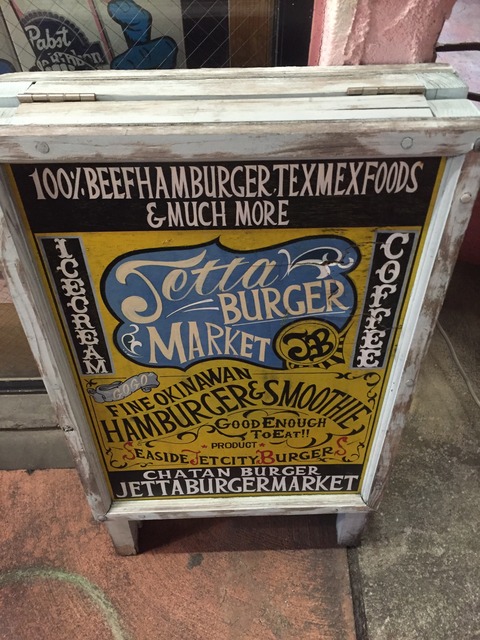 Pabst
100% BEEF HAMBURGER. TEXMEX FOODS
& MUCH MORE
ICECREAM
Jetta
BURGER
MARKET
JB
COFFEE
GOGO
FINE OKINAWAN
HAMBURGER & SMOOTHIE
GOOD ENOUGH
TO EAT!!
PRODUCT
SEASIDE JETCITY BURGERS
CHATAN BURGER
JETTABURGERMARKET